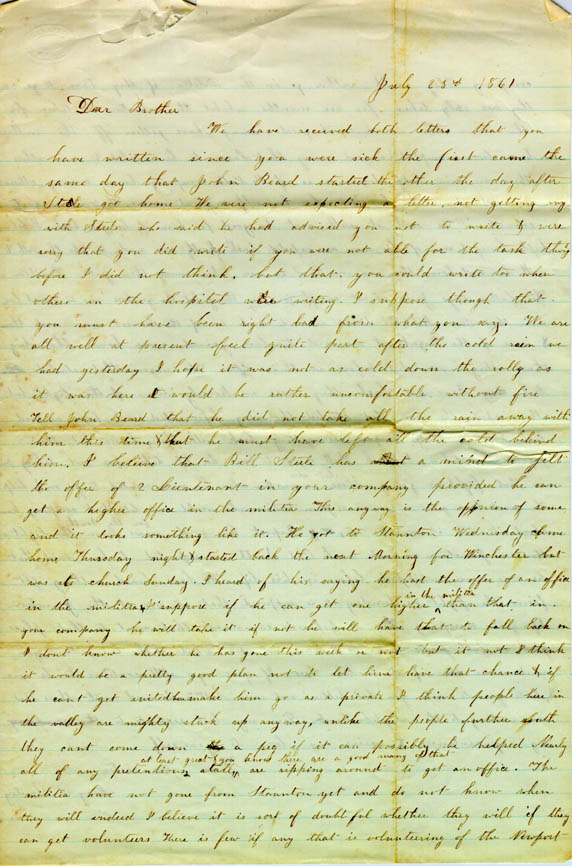 July 23d 1861
Dear Brother
We have received both letters that you
have written since you were sick the first came the
same day that John Beard started the other the day after
Steele got home We were not expecting a letter, not getting any
with Steele who said he had advised you not to write & were
sorry that you did write if you were not able for the task
before I did not think, but that you could write too when
others in the hospital were writing. I suppose though that
you must have been right bad from what you say. We are
all well at present feel quite part after the cold rain we
had yesterday I hope it was not as cold down the vally as
it was here it would be rather uncomfortable without fire
Tell John Beard that he did not take all the rain away with
him this time & that he must have left all the cold behind
him. I believe that Bill Steele has a mind to
the offer of 2 Lieutenant in your company provided he can
get a higher office in the militia This anyway is the opinion of some
and it looks something like it. He got to Staunton Wednesday & came
home Thursday night & started back the next Morning for Winchester but
was at church Sunday. I heard of his saying he had the offer of an office
in the militia & I suppose if he can get one higher in the militia than that in
your company he will take it if not he will have that to fall back on
I dont know whether he has gone this week or not but if not I think
it would be a pretty good plan not to let him have that chance & if
he cant get make him go as a private I think people here in
the valley are mighty stuck up anyway, unlike the people further south
they cant come down a peg if it can possibly be helped Nearly
all of any pretentions atall, at least great & you know there are a good many of that are ripping around to get an office. The
militia have not gone from Staunton yet and do not know when
they will indeed I believe it is sort of doubtful whether they will if they
can get volunteers There is few if any that is volunteering of the Newport